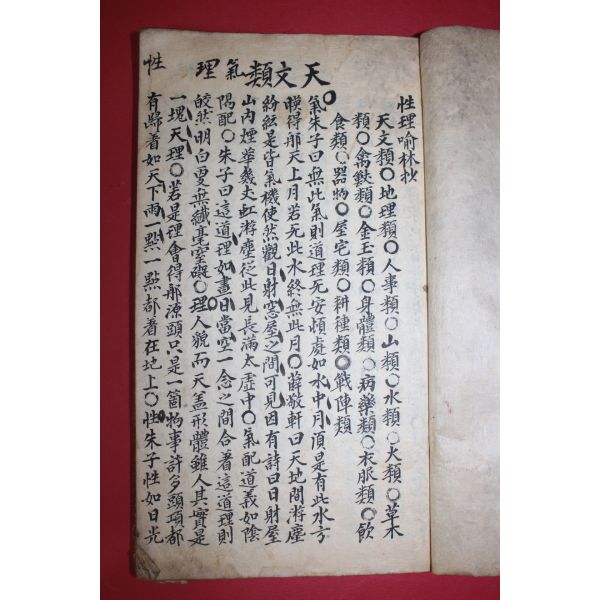 天文類 氣 理 性
性理喻林抄
天文類○地理類○人事類○山類○水類○火類○草木
類○禽獸類○金玉類○身體類○病藥類○衣服類○飮
食類○器物○屋宅類○耕種類○戰陣類
氣朱子曰無此氣則道理死安頓處如水中月須是有此水方
暎得那天上月若死此水終無此月○薛敬軒曰天地間游塵
紛紜是皆氣機使然觀日射窓屋之間可見因有詩曰日射屋
山內煙華幾丈虹游塵從此見長滿太虛中○氣配道義如陰
陽配○朱子曰這道理如晝日當空一念之間合着這道理則
皎然明白更無纖毫窒礙○理人貌而天盖形體雖人其實是
一塊天理○若是理會得那源頭只是一箇物事許多頭項都
有歸着如天下雨一點一點都着在地上○性朱子性如日光